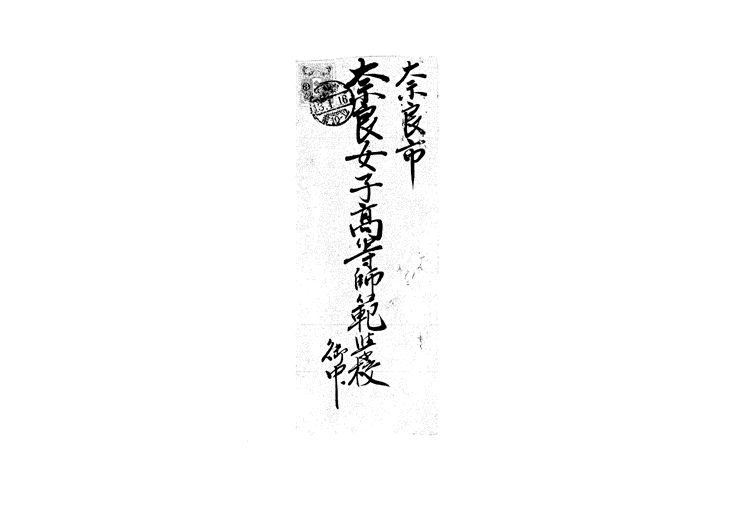 奈良市
奈良女子高等師範学校
御中